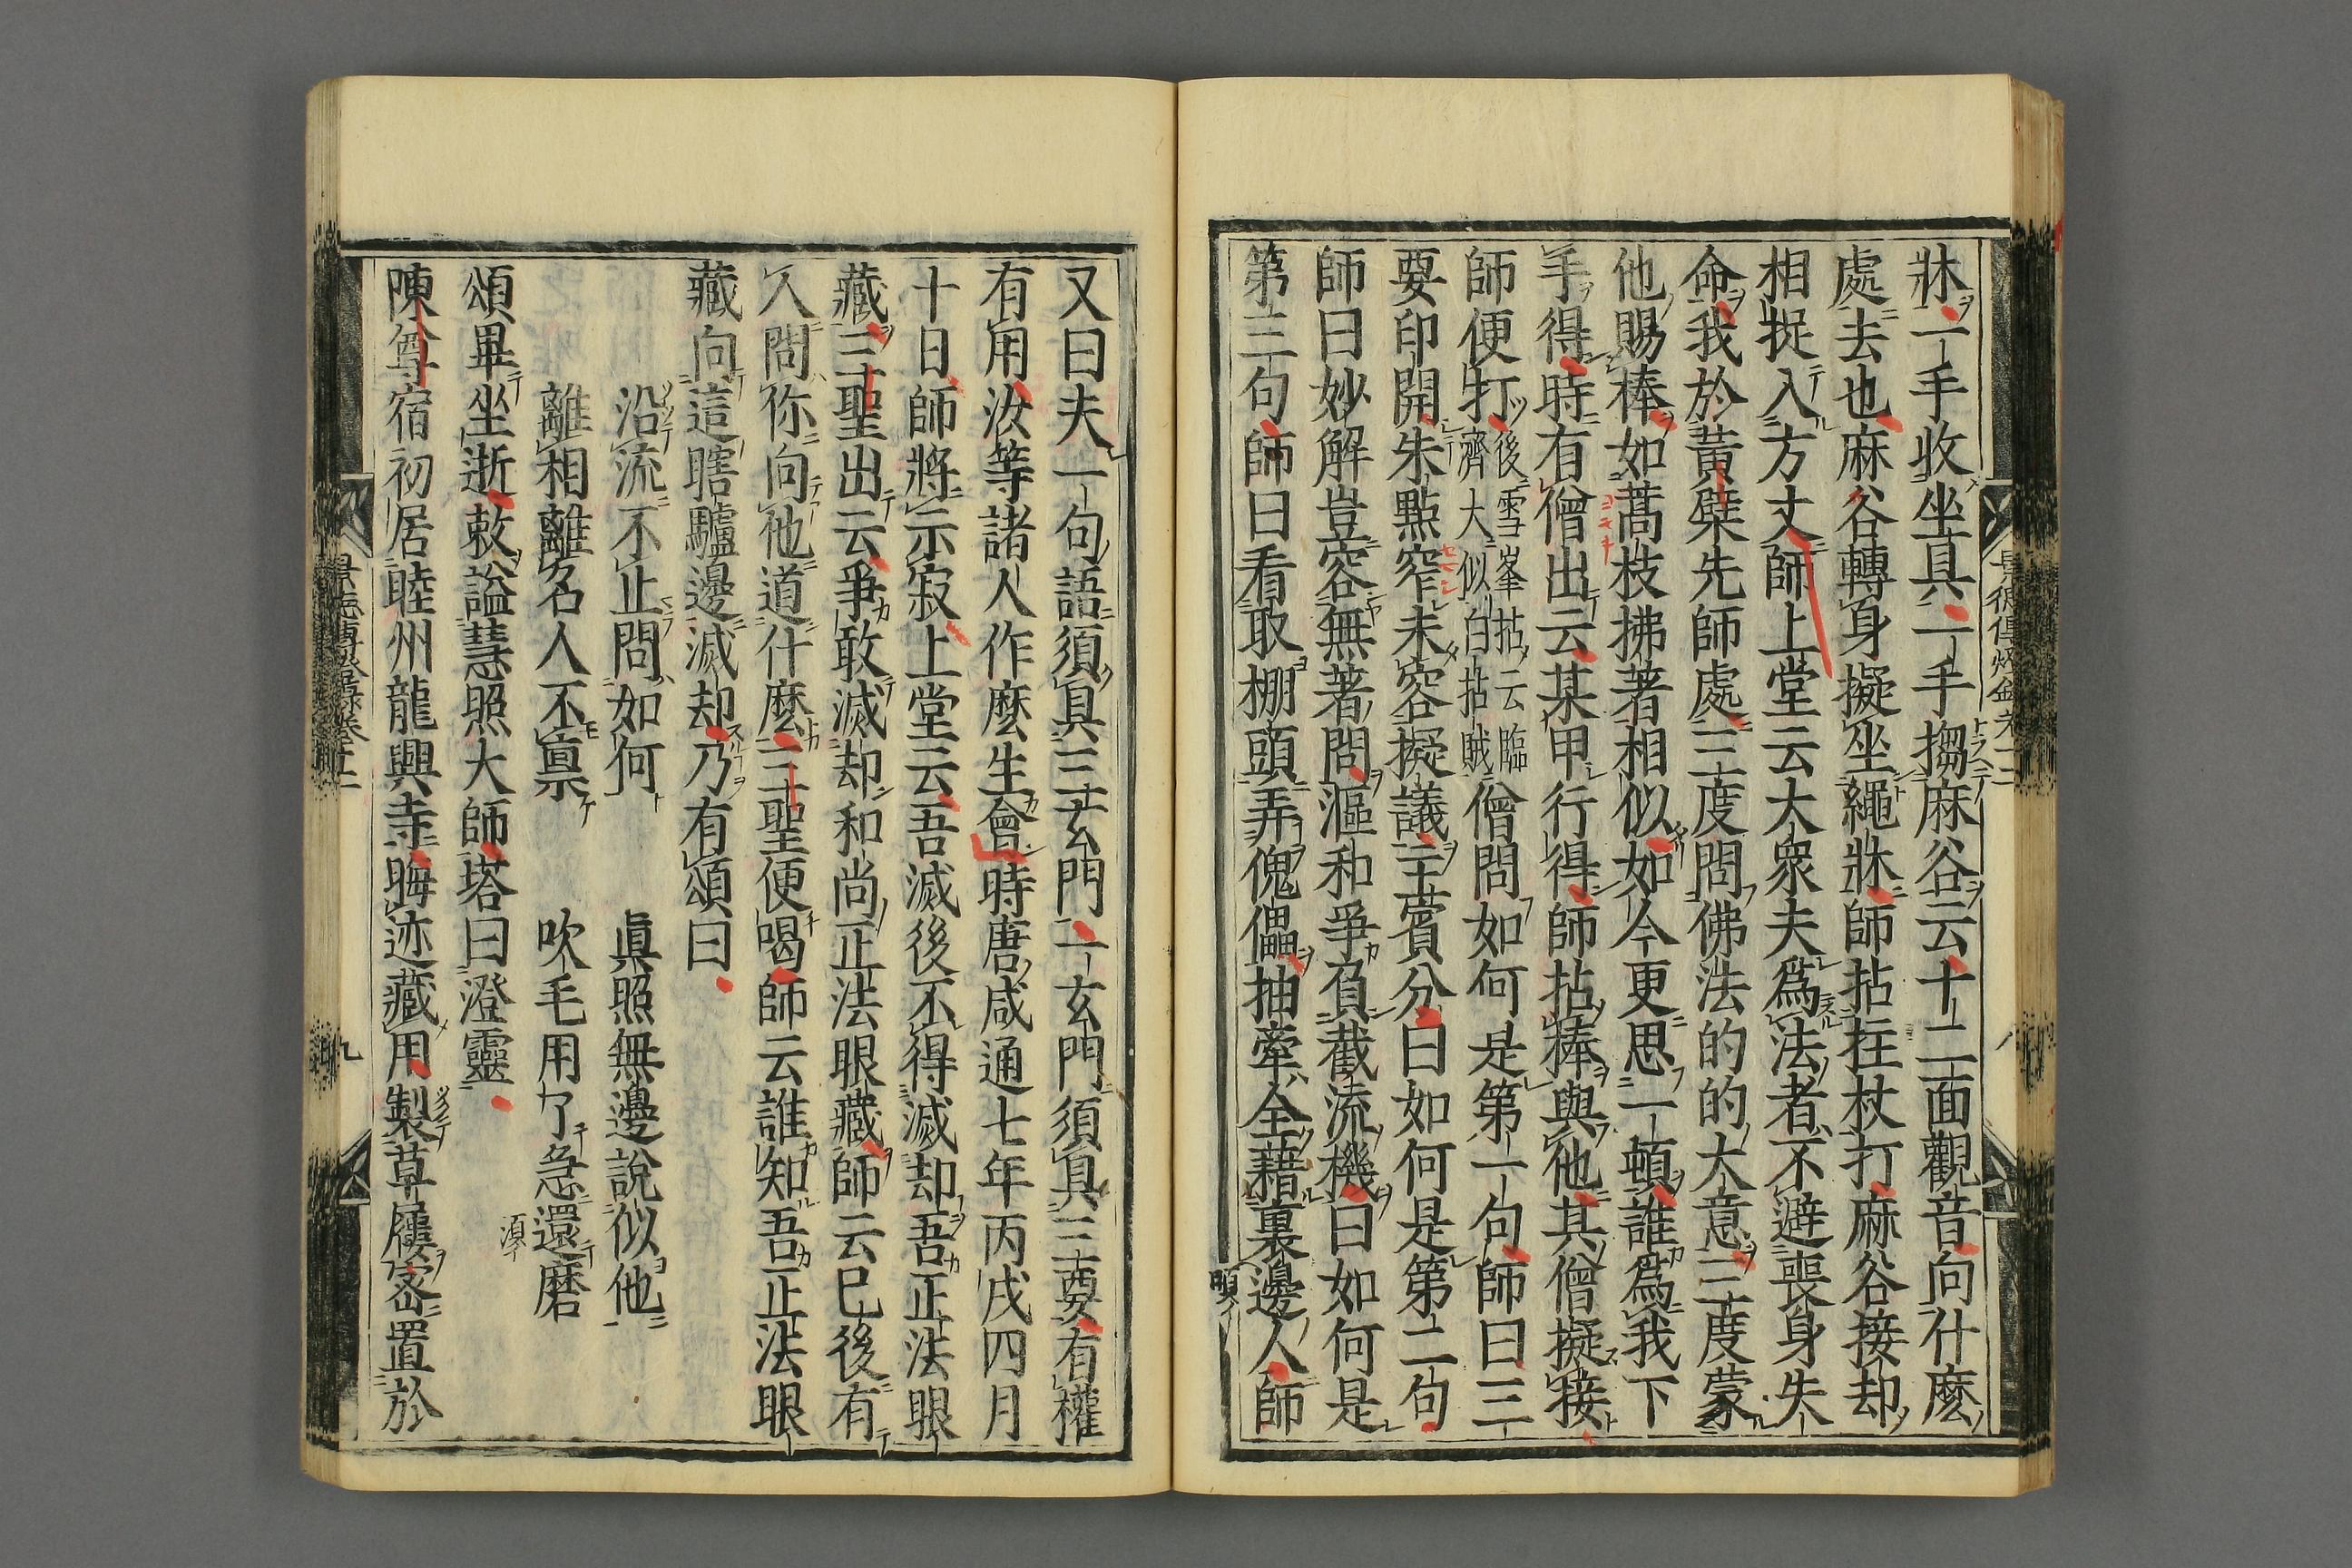 牀一手收坐具一手搊麻谷云十二面觀音向什麽
處去也麻谷轉身擬坐繩牀師拈拄杖打麻谷接却
相捉入方丈師上堂云大衆夫爲法者不避喪身失
命我於黃蘗先師處三度問佛法的的大意三度蒙
他賜棒如蒿枝拂著相似如今更思一頓誰爲我下
手得時有僧出云某甲行得師拈棒與他其僧擬接
師便打後雪峯拈云臨濟大似白拈賊僧問如何是第一句師曰三
要印開朱點窄未容擬議主賓分曰如何是第二句
師曰妙解豈容無著問漚和爭負截流機曰如何是
第三句師曰看取棚頭弄傀儡抽牽全藉裏邊人師
又曰夫一句語須具三玄門一玄門須具三要有權
有用汝等諸人作麽生會時唐咸通七年丙戌四月
十日師將示寂上堂云吾滅後不得滅却吾正法眼
藏三聖出云爭敢滅却和尚正法眼藏師云已後有
人問你向他道什麽三聖便喝師云誰知吾正法眼
藏向這瞎驢邊滅却乃有頌曰
沿流不止問如何 眞照無邊說似他
離相離名人不禀 吹毛用了急還磨
頌畢坐逝敕諡慧照大師塔曰澄靈
陳尊宿初居睦州龍興寺晦迹藏用製草屨密置於